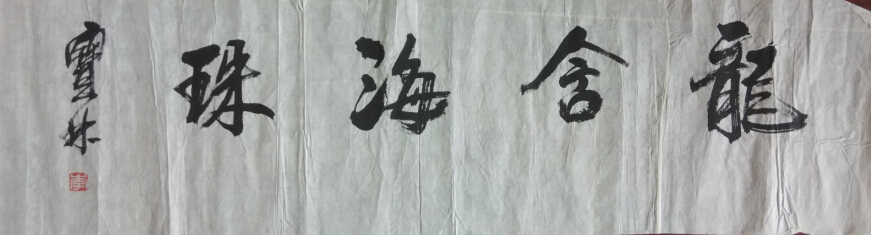 龍含海珠
寶林